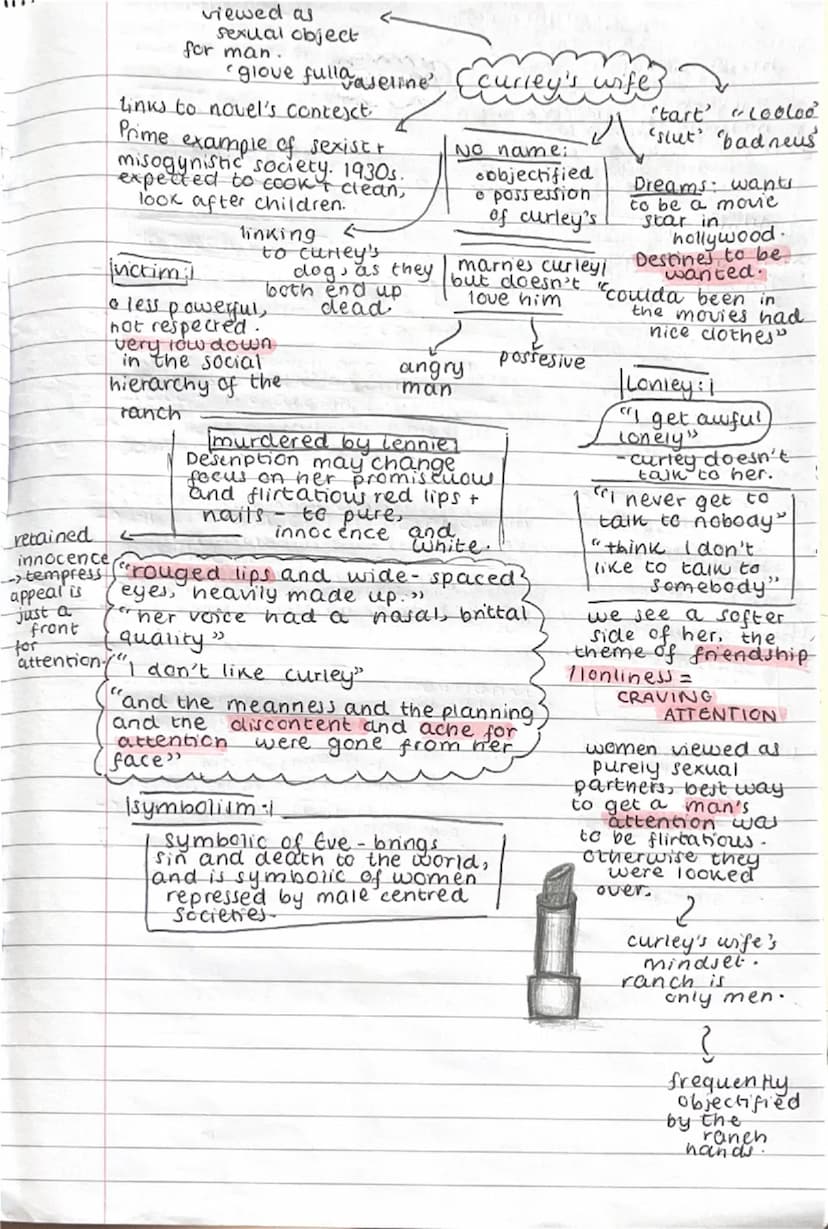 viewed as
sexual object
for man.
'glove fulla
vaseline'
curley's wife
'tart' "looloo"
'slut' 'bad news'
links to novel's context.
Prime example of sexist +
misogynistic society. 1930s.
expected to cook + clean,
look after children.
No name:
objectified
possession
of curley's
Dreams: wants
to be a movie
star in
hollywood.
Destines to be
wanted.
"coulda been in
the movies had
nice clothes"
linking
to curley's
dog, as they
both end up
dead.
marries curley
but doesn't
love him
angry
man
possesive
victim:
less powerful,
not respected.
very low down
in the social
hierarchy of the
ranch
Lonley:
"I get awful
lonely"
-curley doesn't
talk to her.
"I never get to
talk to nobody"
"think I don't
like to talk to
somebody"
murdered by lennie
Description may change
focus on her promiscuous
and flirtatious red lips +
nails - to pure,
innocence and
white.
retained
innocence
→ tempress
appeal is
just a
front
for
attention.
"rouged lips and wide-spaced
eyes, heavily made up."
"her voice had a nasal, brittal
quality"
"I don't like curley"
"and the meanness and the planning
and the discontent and ache for
attention were gone from her
face"
we see a softer
side of her, the
theme of friendship
/lonliness =
CRAVING
ATTENTION
symbolism:
symbolic of Eve - brings
sin and death to the world,
and is symbolic of women
repressed by male centred
societies.
women viewed as
purely sexual
partners, best way
to get a man's
attention was
to be flirtatious.
otherwise they
were looked
over.
curley's wife's
mindset.
ranch is
only men.
frequently
objectified
by the
ranch
hands.